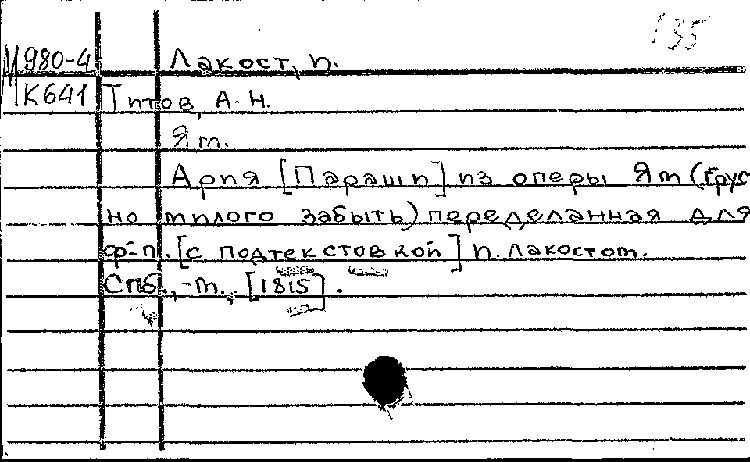 135
М980-4 Лакост, п.
К641 Титов, А.Н.
Ям.
Ария [Параши] из оперы Ям (Грус
но милого забыть) переделанная для
ф-п. [с подтекстовкой] п. Лакостом.
Спб., -т., [1815].